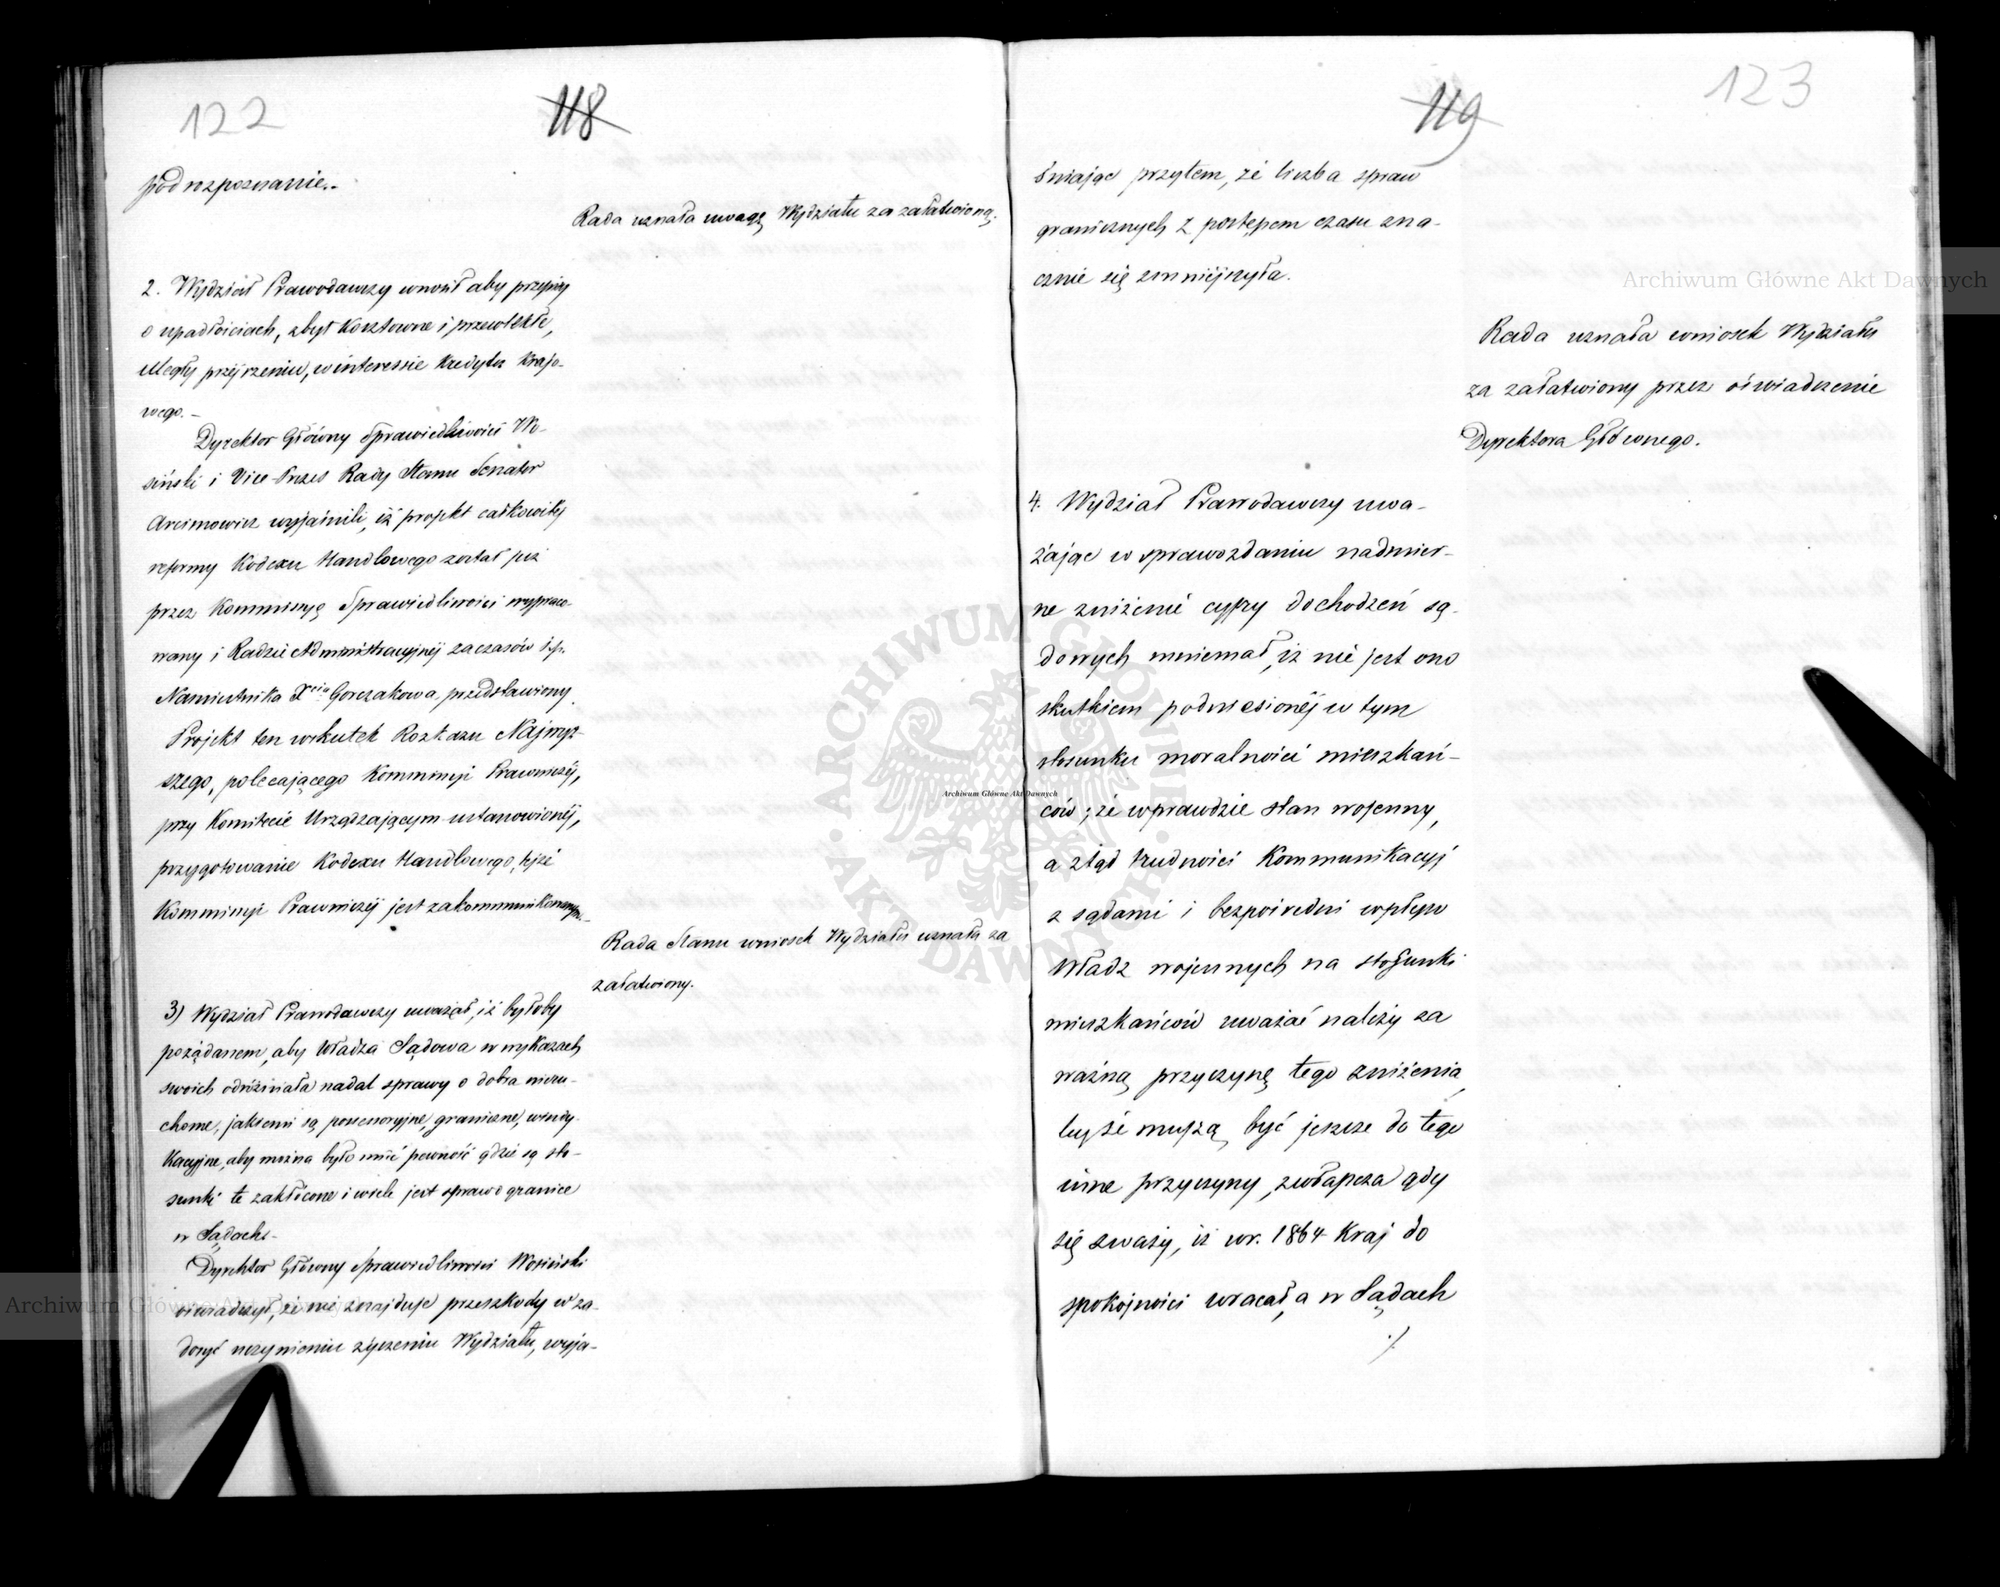 122
118
pod rozpoznanie.-
Rada uznała uwagę Wydziału za załatwioną.
2. Wydział Prawodawczy wnosił aby przepisy
o upadłościach, zbyt kosztowne i przewlekłe,
uległy przejrzeniu, w interessie kredytu krajo-
wego. -
Dyrektor Główny Sprawiedliwości Wo-
siński i Vice-Prezes Rady Stanu Senator
Arcimowicz wyjaśnili, iż projekt całkowitej
reformy Kodexu Handlowego został już
przez Kommissyę Sprawiedliwości wypraco-
wany i Radzie Administracyjnej za czasów ś.p.
Namiestnika Xcia Gorczakowa przedstawiony.
Projekt ten wskutek Rozkazu Najwyż-
szego, polecającego Kommissyi Prawniczej,
przy Komitecie Urządzającym ustanowionej,
przygotowanie Kodexu Handlowego, tejże
Kommissyi Prawniczej jest zakommunikowany.-
Rada Stanu wniosek Wydziału uznała za
załatwiony.
3) Wydział Prawodawczy uważał, iż byłoby
pożądanem, aby Władza Sądowa w wykazach
swoich odróżniała nadal sprawy o dobra nieru-
chome, jakiemi są possessoryjne, graniczne, windy-
kacyjne, aby można było mieć pewność gdzie są sto-
sunki te zakłócone i wiele jest spraw o granice
w Sądach.-
Dyrektor Główny Sprawiedliwości Wosiński
oświadczył, że nie znajduje przeszkody w za-
dosyć uczynieniu życzeniu Wydziału, wyja-
119
123
śniając przytem, że liczba spraw
granicznych z postępem czasu zna-
cznie się zmniejszyła.
Rada uznała wniosek Wydziału
za załatwiony przez oświadczenie
Dyrektora Głównego.
4. Wydział Prawodawczy uwa-
żając w sprawozdaniu nadmier-
ne zniżenie cyfry dochodzeń są-
dowych mniemał, iż nie jest ono
skutkiem podniesionej w tym
stosunku moralności mieszkań-
ców; że wprawdzie stan wojenny,
a ztąd trudności kommunikacyi
z sądami i bezpośredni wpływ
Władz wojennych na stosunki
mieszkańców uważać należy za
ważną przyczynę tego zniżenia,
lecz że muszą być jeszcze do tego
inne przyczyny, zwłaszcza gdy
się zważy, iż w r. 1864 Kraj do
spokojności wracał, a w Sądach
./.
Archiwum Główne Akt Dawnych
Archiwum Główne Akt Dawnych
Archiwum Główne Akt Dawnych
ARCHIWUM GŁÓWNE AKT DAWNYCH